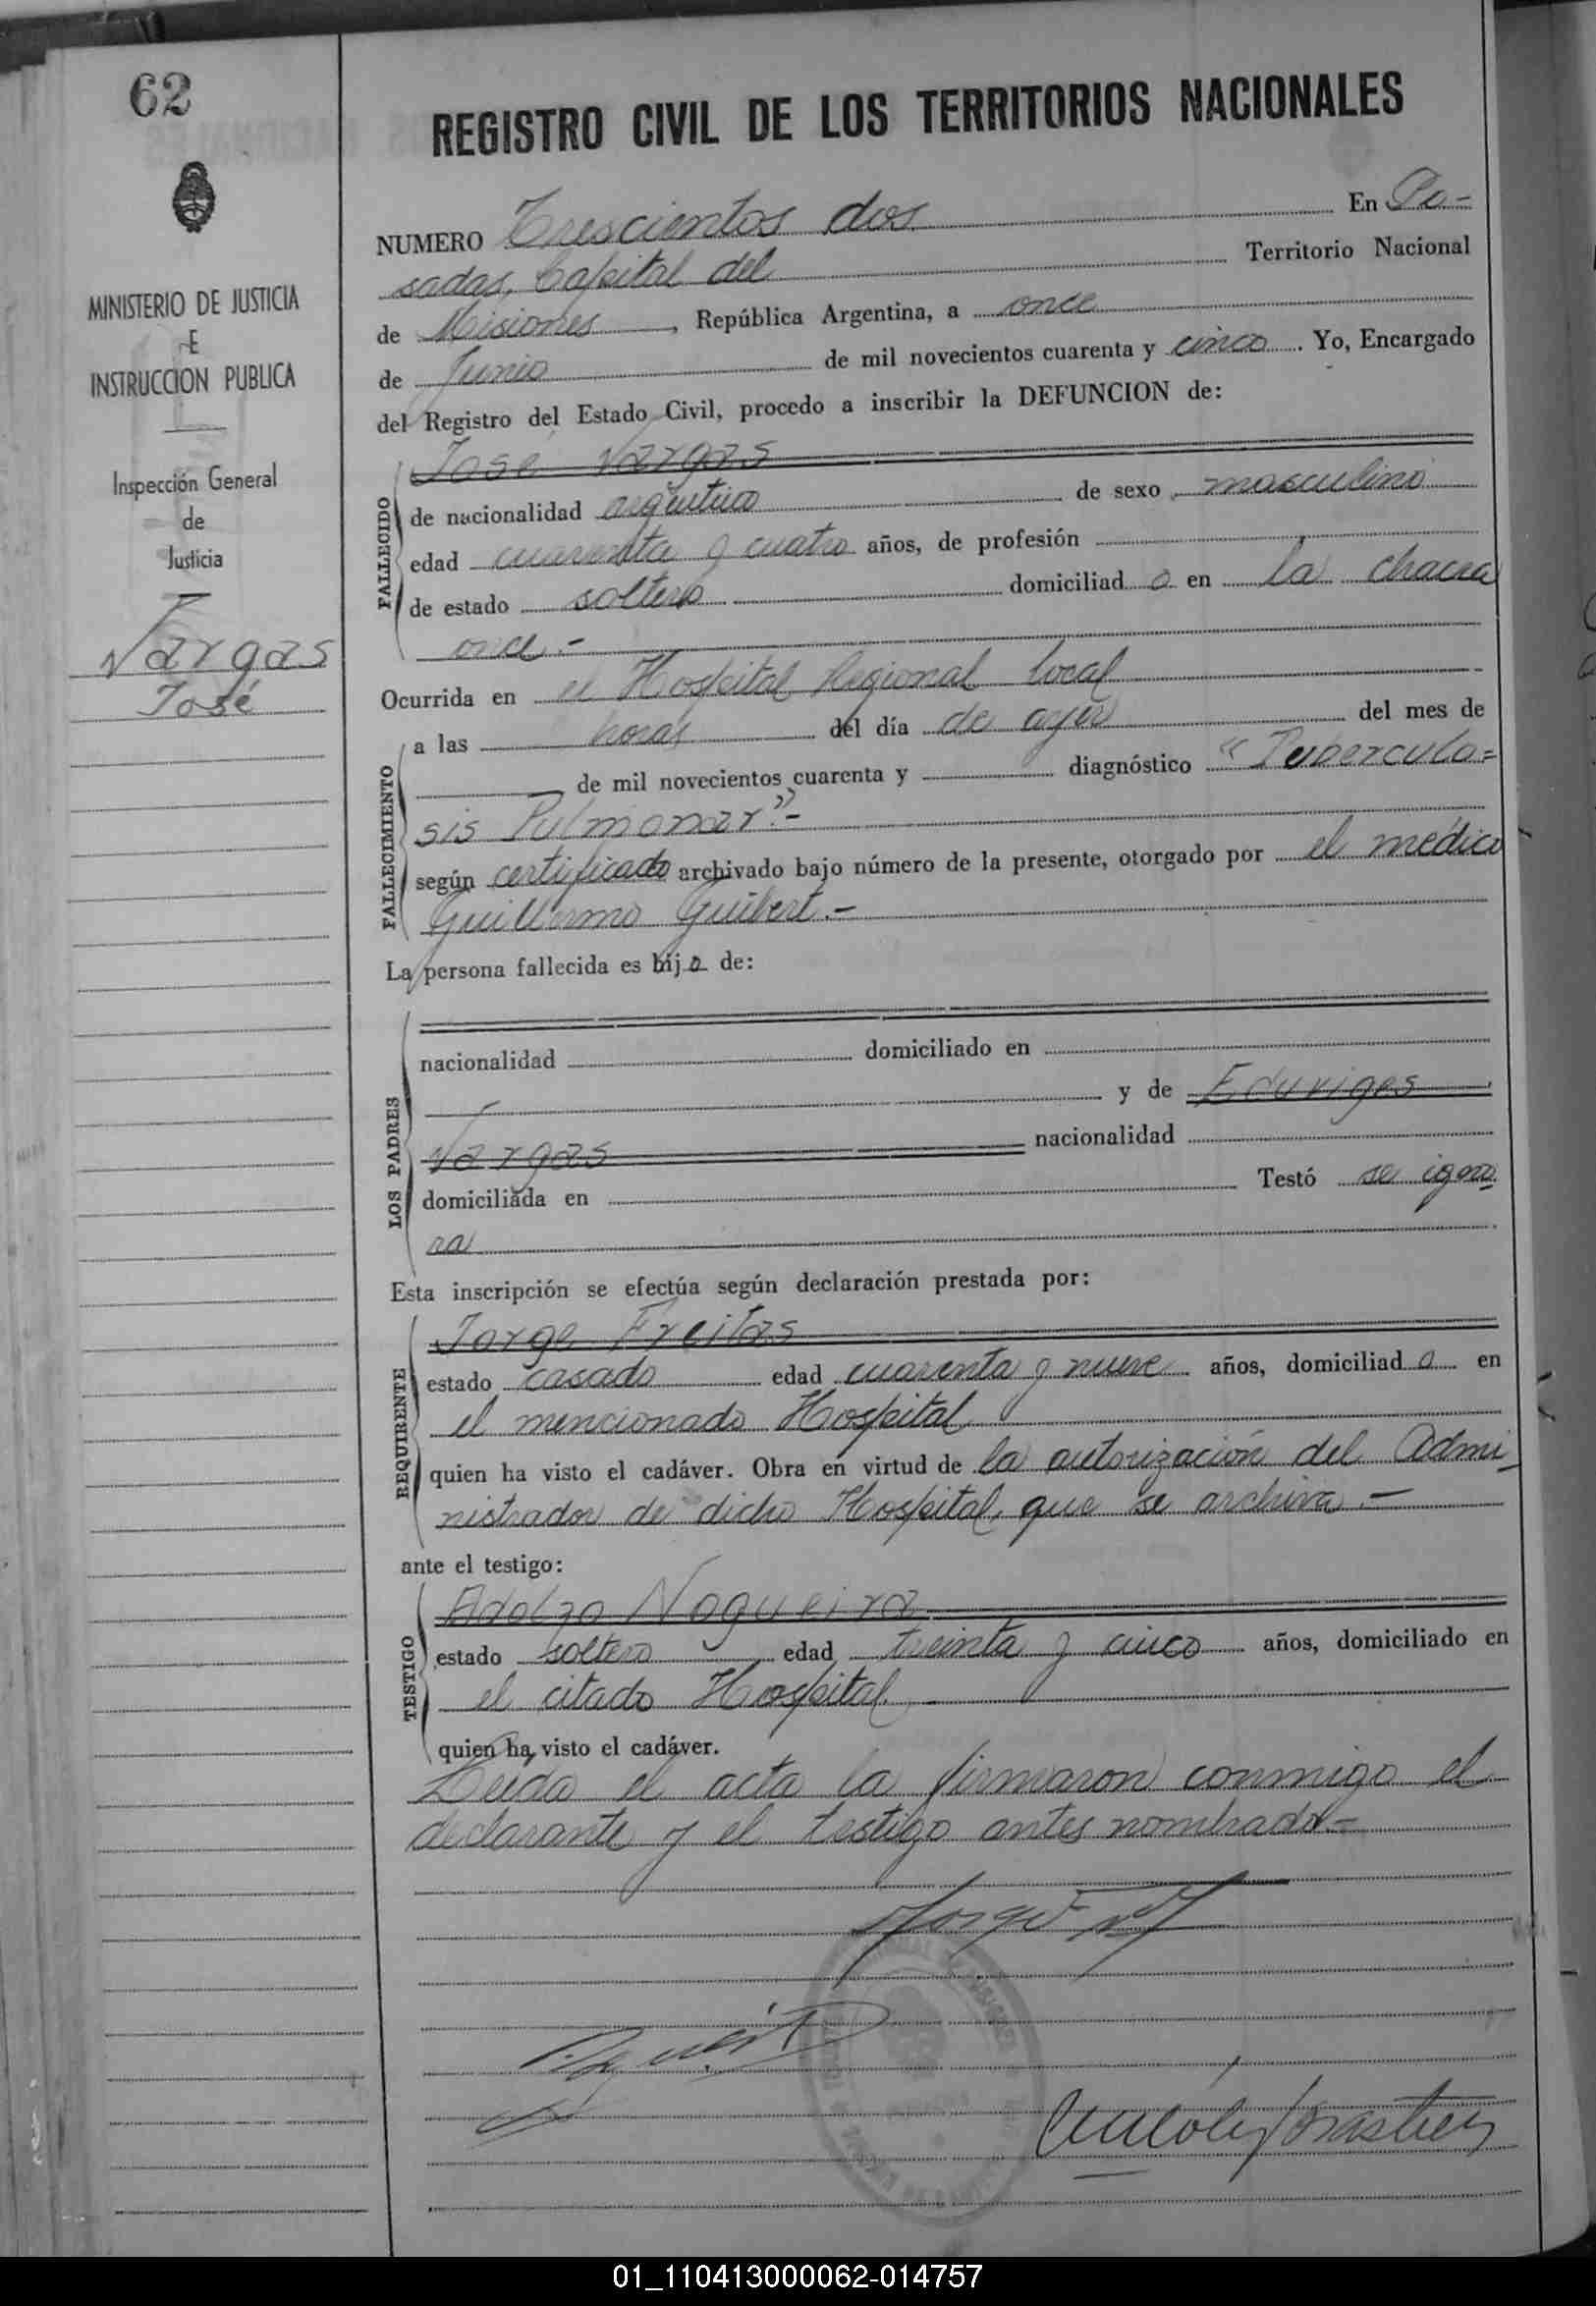 62
MINISTERIO DE JUSTICIA
E
INSTRUCCION PUBLICA
Inspección General
de
Justicia
Vargas
José
REGISTRO CIVIL DE LOS TERRITORIOS NACIONALES
NUMERO Trescientos dos En Po-
sadas, Capital del Territorio Nacional
de Misiones, República Argentina, a once
de Junio de mil novecientos cuarenta y cinco. Yo, Encargado
del Registro del Estado Civil, procedo a inscribir la DEFUNCION de:
FALLECIDO
José Vargas
de nacionalidad argentino de sexo masculino
edad cuarenta y cuatro años, de profesión
de estado soltero domiciliado en la chacra
once.-
Ocurrida en el Hospital Regional local
FALLECIMIENTO
a las horas del día de ayer del mes de
de mil novecientos cuarenta y diagnóstico "Tuberculo=
sis Pulmonar".-
según certificado archivado bajo número de la presente, otorgado por el médico
Guillermo Guibert.-
La persona fallecida es hijo de:
LOS PADRES
nacionalidad domiciliado en
y de Eduviges
Vargas nacionalidad
domiciliada en Testó se igno
ra
Esta inscripción se efectúa según declaración prestada por:
REQUIRENTE
Jorge Freitas
estado casado edad cuarenta y nueve años, domiciliado en
el mencionado Hospital
quien ha visto el cadáver. Obra en virtud de la autorización del Admi-
nistrador de dicho Hospital, que se archiva.-
ante el testigo:
TESTIGO
Adolfo Nogueira
estado soltero edad treinta y cinco años, domiciliado en
el citado Hospital
quien ha visto el cadáver.
Leída el acta la firmaron conmigo el
declarante y el testigo antes nombrado.-
Jorge
01_110413000062-014757